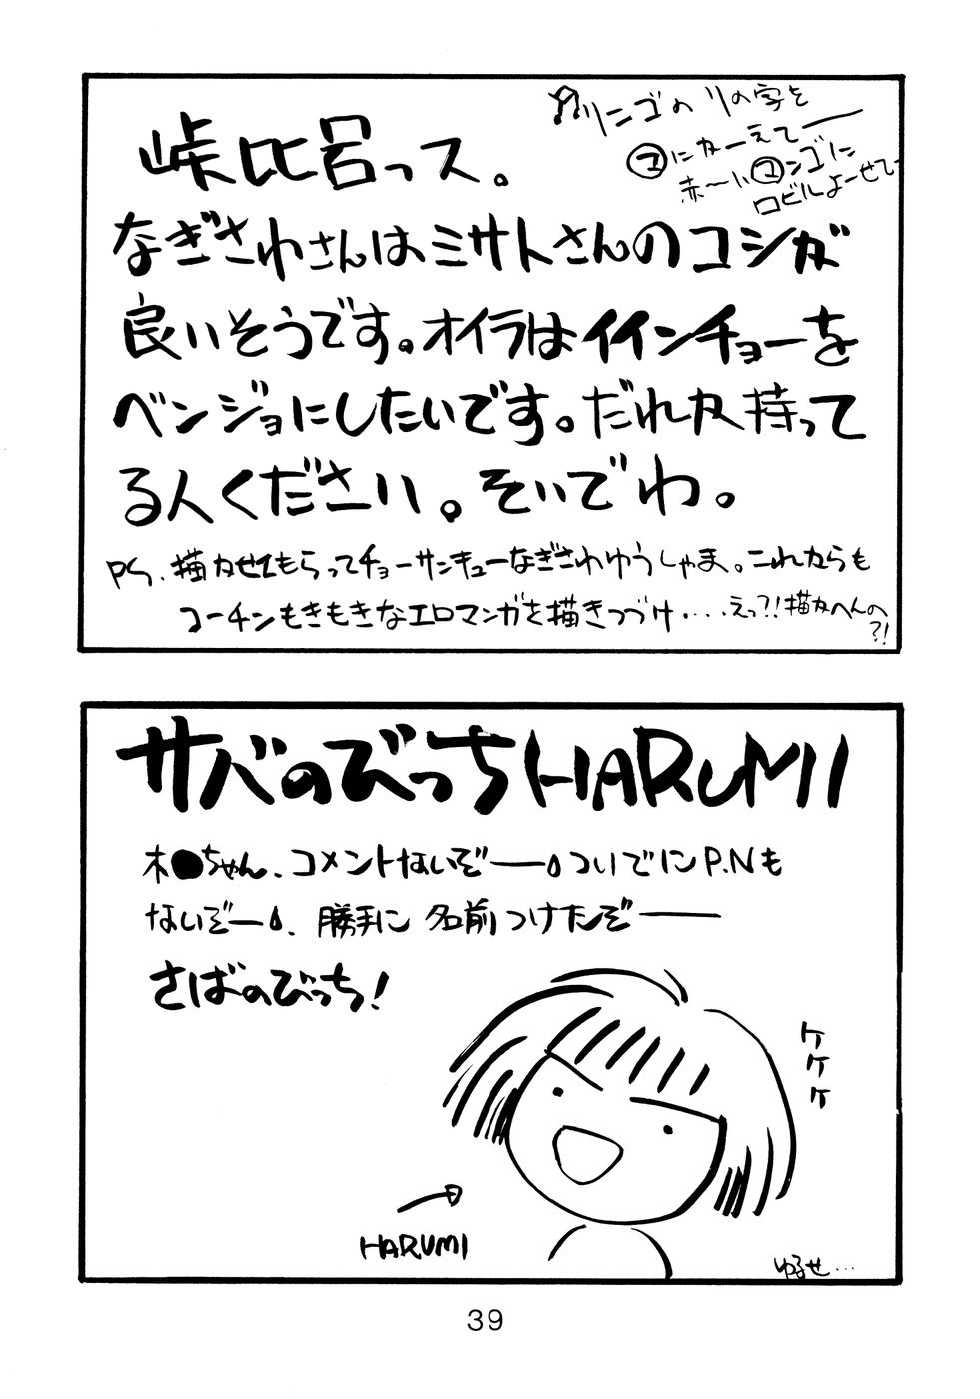 リンゴの リの字を
㋮にかーえてー
赤〜い㋮ンゴに
ロビルよーせてー
峠比呂っス。
なぎさわさんはミサトさんのコシが
良いそうです。オイラはイインチョーを
ベンジョにしたいです。だれか持って
る人ください。そいでわ。
PS、描かせてもらってチョーサンキューなぎさわゆうしゃま。これからも
コーチンもきもきなエロマンガを描きつづけ・・・・えっ?!描かへんの
?!
サバのびっちHARUMI
木●ちゃん、コメントないぞー。ついでにP.Nも
ないぞー。勝手に名前つけたぞー
さばのびっち!
ケケケ
HARUMI
ゆるせ…
39